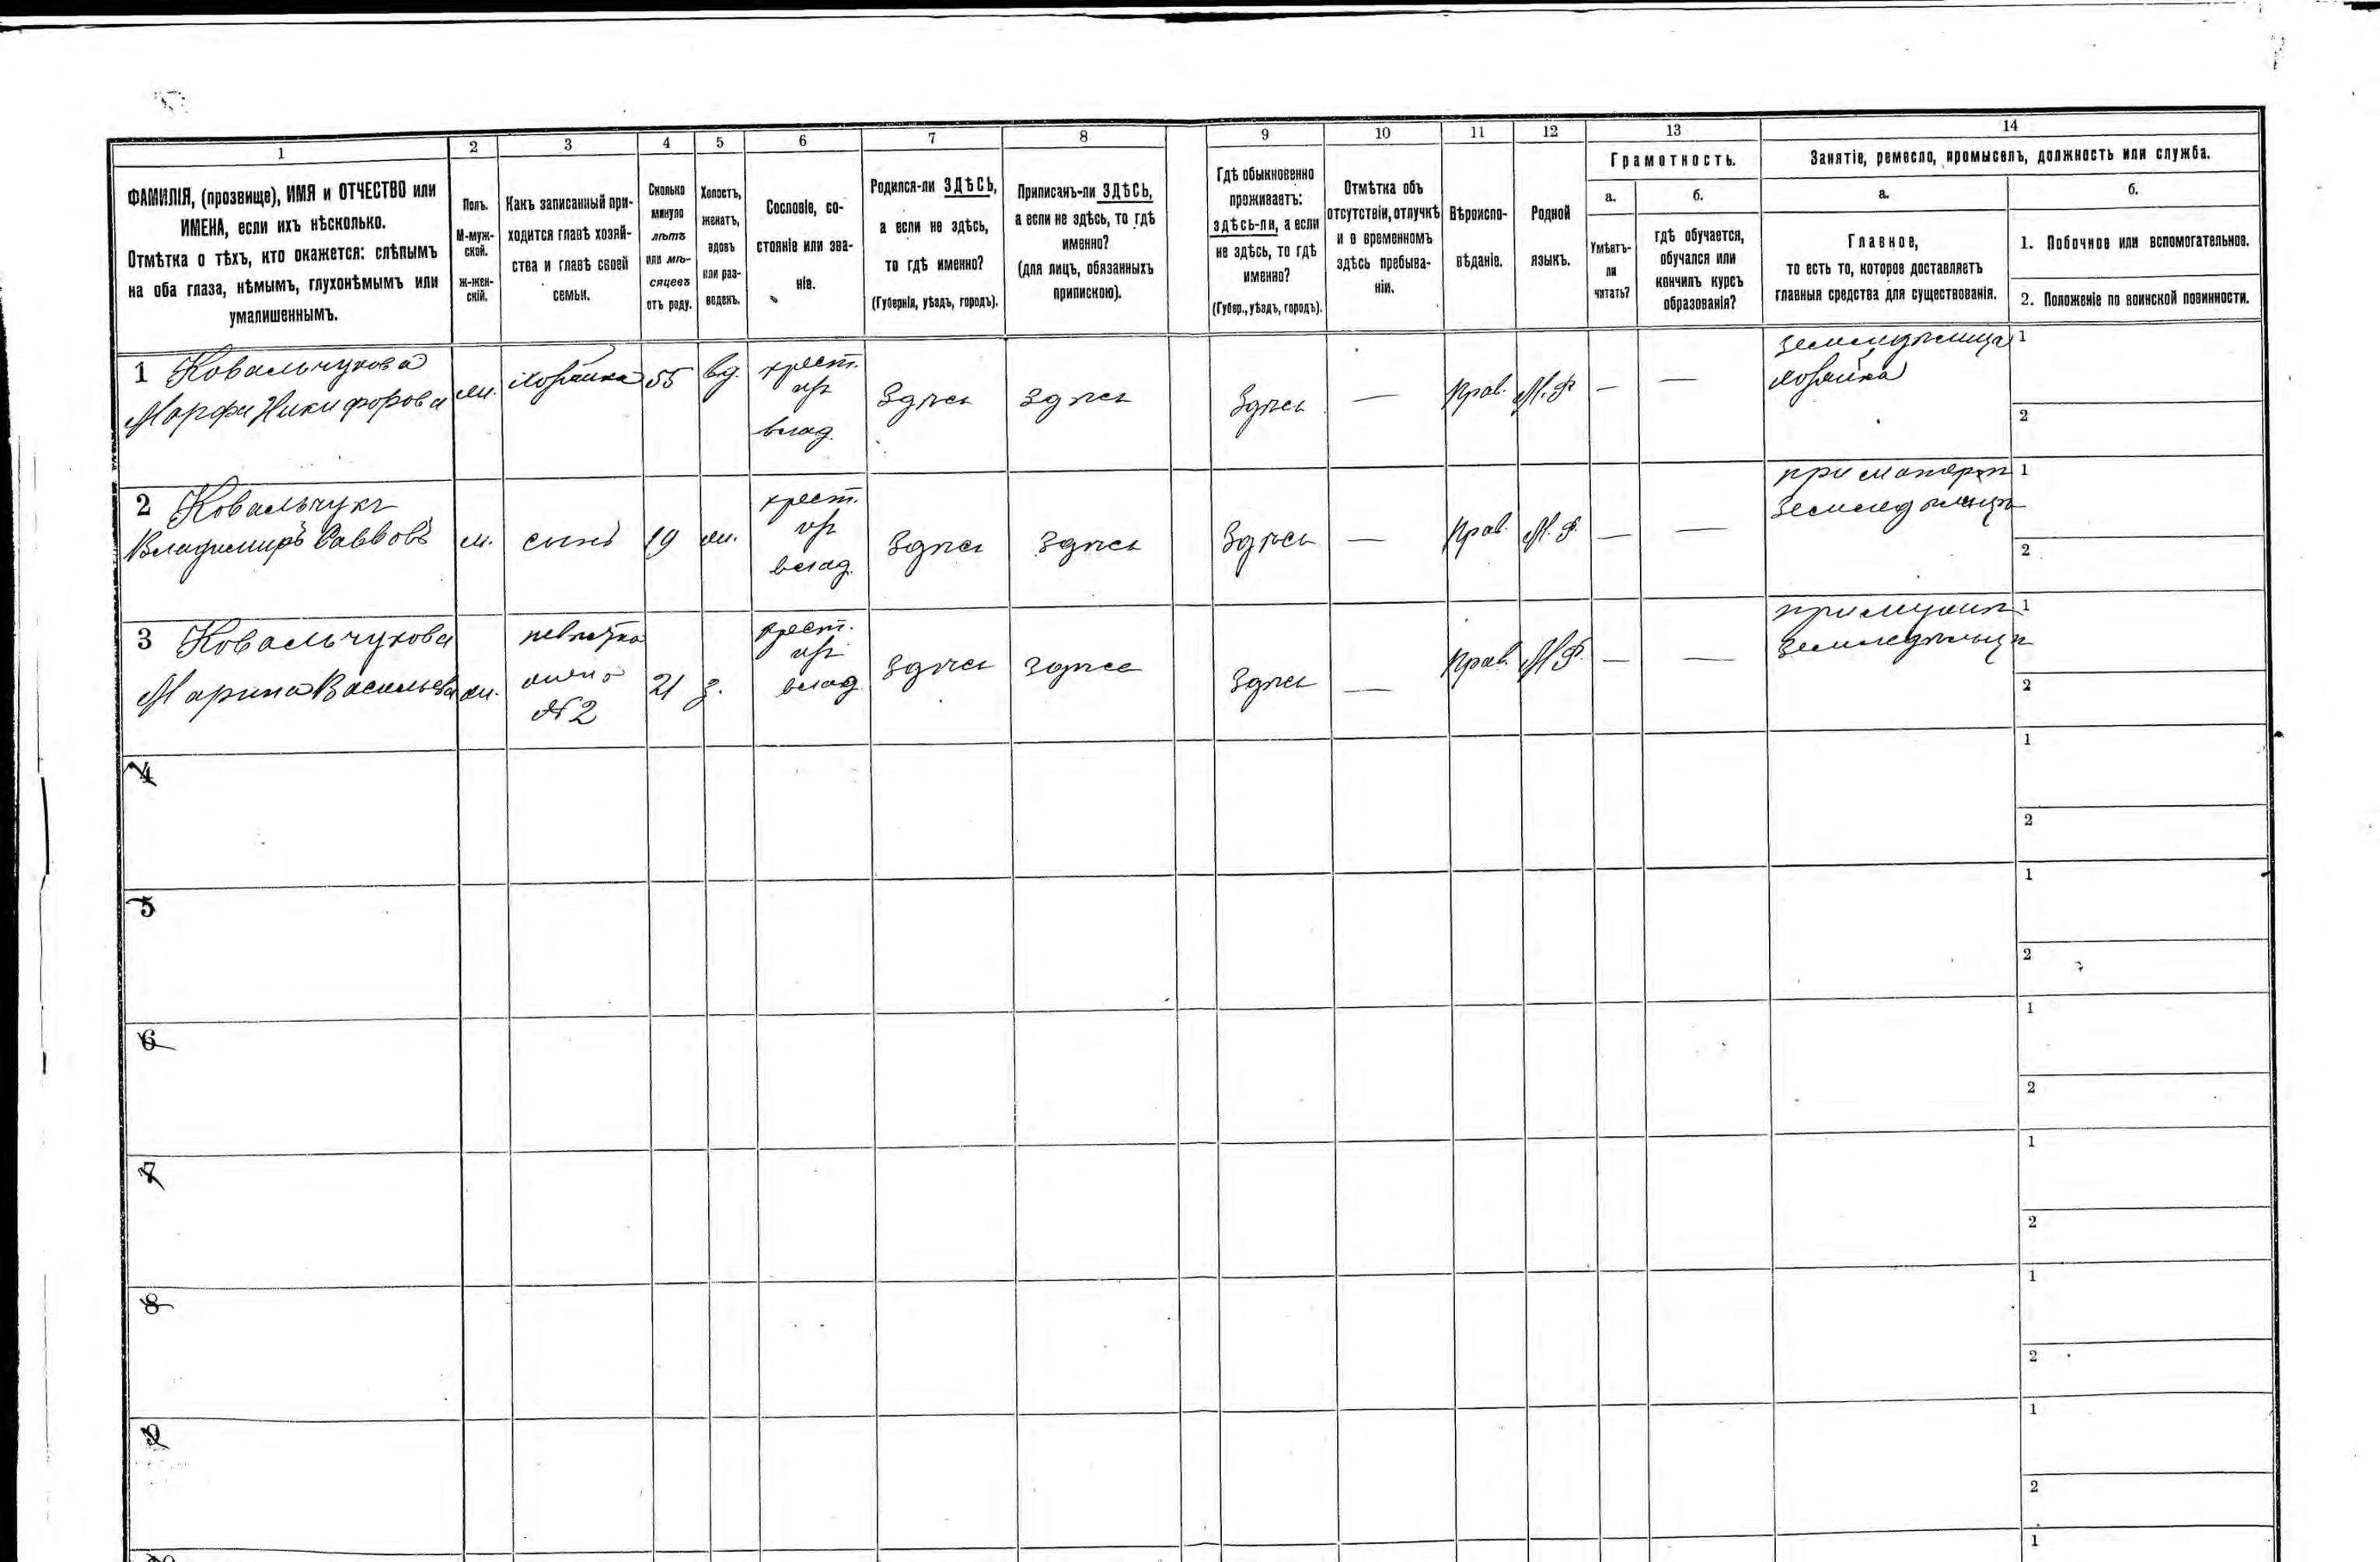 1
2
3
4
5
6
7
8
9
10
11
12
13
14
ФАМИЛІЯ, (прозвище), ИМЯ и ОТЧЕСТВО или
ИМЕНА, если ихъ нѣсколько.
Отмѣтка о тѣхъ, кто окажется: слѣпымъ
на оба глаза, нѣмымъ, глухонѣмымъ или
умалишеннымъ.
Полъ.
М-муж-
ской.
ж-жен-
скій.
Какъ записанный при-
ходится главѣ хозяй-
ства и главѣ своей
семьи.
Сколько
минуло
лѣтъ
или мѣ-
сяцевъ
отъ роду.
Холостъ,
женатъ,
вдовъ
или раз-
веденъ.
Сословіе, со-
стояніе или зва-
ніе.
Родился-ли ЗДѢСЬ,
а если не здѣсь,
то гдѣ именно?
(Губернія, уѣздъ, городъ).
Приписанъ-ли ЗДѢСЬ,
а если не здѣсь, то гдѣ
именно?
(для лицъ, обязанныхъ
припискою).
Гдѣ обыкновенно
проживаетъ:
здѣсь-ли, а если
не здѣсь, то гдѣ
именно?
(Губер., уѣздъ, городъ).
Отмѣтка объ
отсутствіи, отлучкѣ
и о временномъ
здѣсь пребыва-
ніи.
Вѣроиспо-
вѣданіе.
Родной
языкъ.
Грамотность.
а.
Умѣетъ-
ли
читать?
б.
гдѣ обучается,
обучался или
кончилъ курсъ
образованія?
Занятіе, ремесло, промыселъ, должность или служба.
а.
Главное,
то есть то, которое доставляетъ
главныя средства для существованія.
б.
1. Побочное или вспомогательное.
2. Положеніе по воинской повинности.
1 Ковальчукова
Марфа Никифорова
ж.
хозяйка
55
вд.
крест.
изъ
влад.
Здѣсь
Здѣсь
Здѣсь
—
Прав.
М. Р.
—
—
земледѣлица
хозяйка
1
2
2 Ковальчукъ
Владимиръ Саввовъ
м.
сынъ
19
ж.
крест.
изъ
влад.
Здѣсь
Здѣсь
Здѣсь
—
Прав.
М. Р.
—
—
при матери
земледѣлицѣ
1
2
3 Ковальчукова
Марина Васильева
ж.
невѣстка
жена
№ 2
21
з.
крест.
изъ
влад.
Здѣсь
Здѣсь
Здѣсь
—
Прав.
М. Р.
—
—
при мужѣ
1
2
4
1
2
5
1
2
6
1
2
7
1
2
8
1
2
9
1
2
1